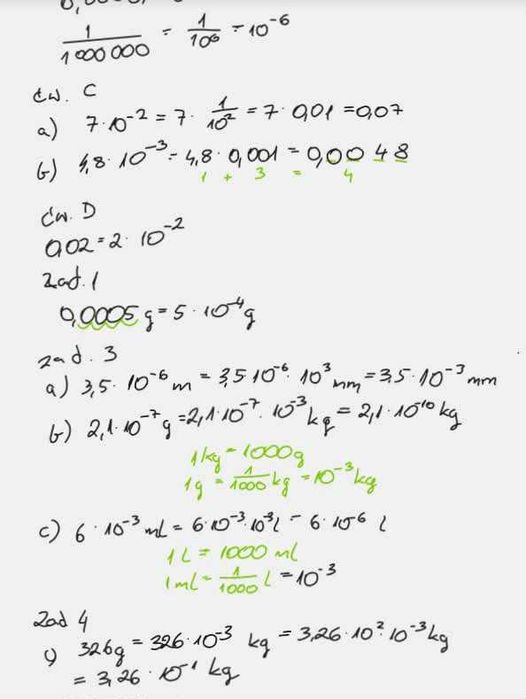 0,0000,
1/1000 000 = 1/10⁶ = 10⁻⁶
ćw. C
a) 7·10⁻² = 7 · 1/10² = 7 · 0,01 = 0,07
b) 4,8 · 10⁻³ = 4,8 · 0,001 = 0,0048
1 + 3 = 4
ćw. D
0,02 = 2 · 10⁻²
zad. 1
0,0005 g = 5 · 10⁻⁴ g
zad. 3
a) 3,5 · 10⁻⁶ m = 3,5·10⁻⁶ · 10³ mm = 3,5 · 10⁻³ mm
b) 2,1·10⁻⁷ g = 2,1·10⁻⁷ · 10⁻³ kg = 2,1·10⁻¹⁰ kg
1 kg = 1000 g
1 g = 1/1000 kg = 10⁻³ kg
c) 6 · 10⁻³ ml = 6·10⁻³·10⁻³ l = 6·10⁻⁶ l
1 L = 1000 ml
1 ml = 1/1000 l = 10⁻³
Zad 4
c) 326 g = 326 · 10⁻³ kg = 3,26 · 10² 10⁻³ kg
= 3,26 · 10⁻¹ kg